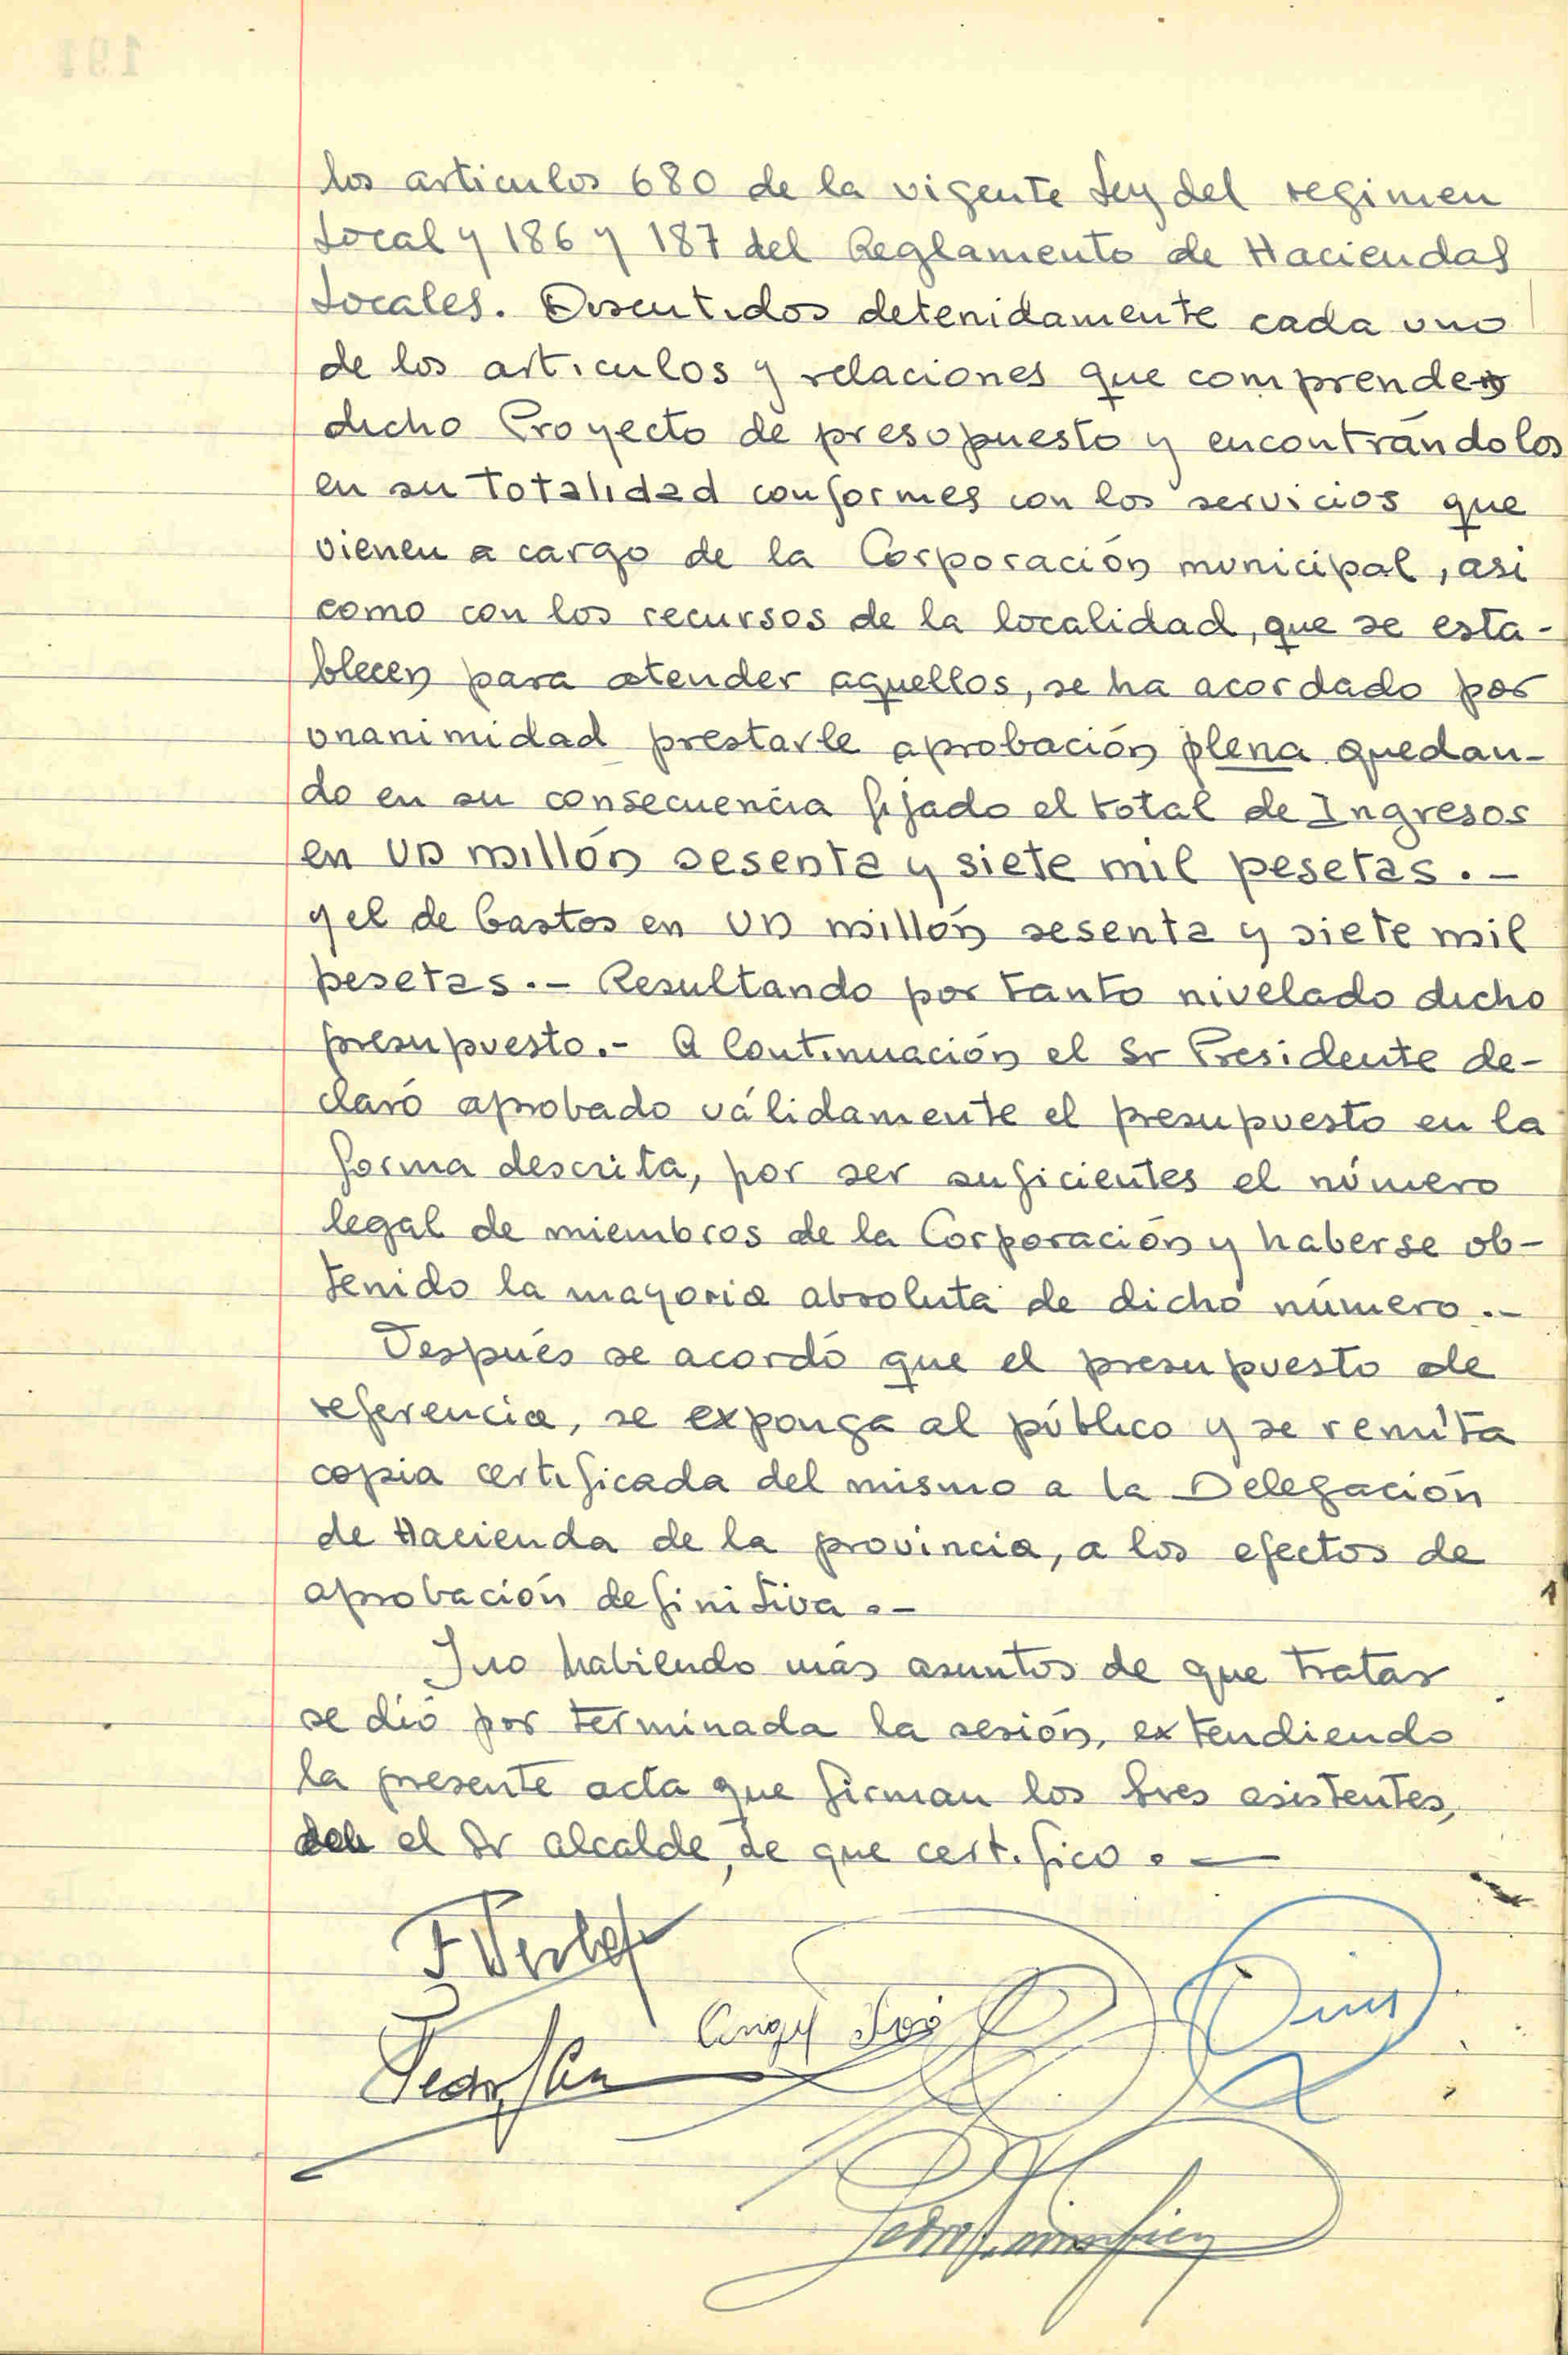 los articulos 680 de la vigente Ley del regimen
Local y 186 y 187 del Reglamento de Haciendas
Locales. Discutidos detenidamente cada uno
de los articulos y relaciones que comprende
dicho Proyecto de presupuesto y encontrándolos
en su totalidad conformes con los servicios que
vienen a cargo de la Corporación municipal, asi
como con los recursos de la localidad, que se esta-
blecen para atender aquellos, se ha acordado por
unanimidad prestarle aprobación plena quedan-
do en su consecuencia fijado el total de Ingresos
en un millón sesenta y siete mil pesetas.-
y el de Gastos en un millón sesenta y siete mil
pesetas.- Resultando por tanto nivelado dicho
presupuesto.- A Continuación el Sr Presidente de-
claró aprobado válidamente el presupuesto en la
forma descrita, por ser suficientes el número
legal de miembros de la Corporación y haberse ob-
tenido la mayoria absoluta de dicho número.-
Después se acordó que el presupuesto de
referencia, se exponga al público y se remita
copia certificada del mismo a la Delegación
de Hacienda de la provincia, a los efectos de
aprobación definitiva.-
Y no habiendo más asuntos de que tratar
se dió por terminada la sesión, extendiendo
la presente acta que firman los Sres asistentes,
el Sr alcalde, de que certifico.-
Angel
Pedro